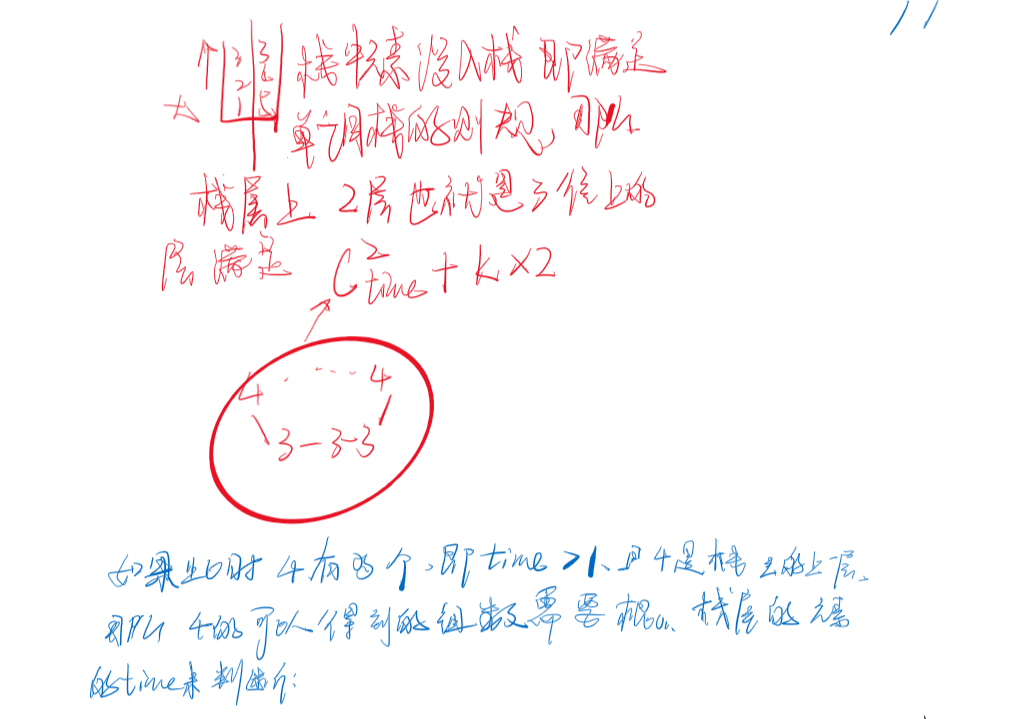 个 3 3 栈中元素没入栈即满足
大 2 4 单调栈的规则, 所以
1 5
栈底上 2层 也就是3位上的
层满足 C²time + k×2
4 ... 4
3 — 3-3
如果此时 4 有多个、即 time >1、且4是栈 的上层、
所以 4的可以得到的组数需要根 栈底的元素
的time来判断: